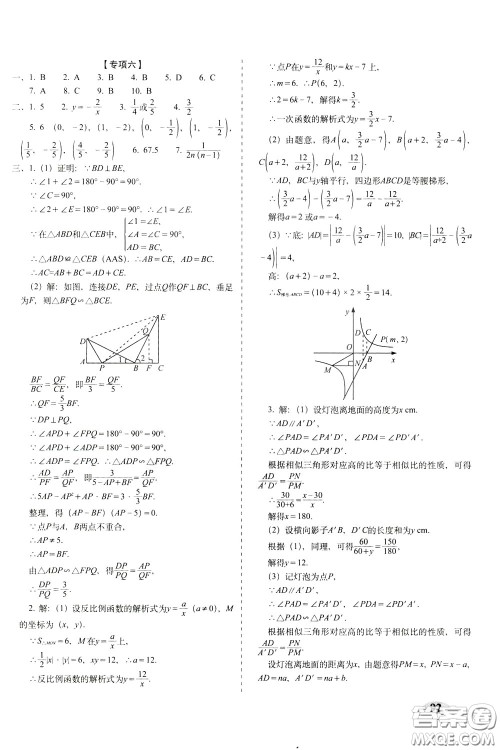 【专项六】
一、1. B  2. A  3. B  4. B  5. C  6. C
7. A  8. C  9. B  10. B
二、1. 5  2. y=-2/x  3. 1/4或2/5  4. 3/2
5. 6 (0，-2)，(1，-2)，(0，-1/2)，(1，-1/2)，
(1/5，-2/5)，(4/5，-2/5)  6. 67.5  7. 1/(2n(n-1))
三、1. (1) 证明：∵BD⊥BE，
∴∠1+∠2=180°-90°=90°.
∵∠C=90°，
∴∠2+∠E=180°-90°=90°. ∴∠1=∠E.
∵在△ABD和△CEB中，{∠1=∠E，∠A=∠C=90°，AD=BC，
∴△ABD≌△CEB (AAS). ∴AB=CE，AD=BC.
∴AC=AB+BC=AD+CE.
(2) 解：如图，连接DE，PE，过点Q作QF⊥BC，垂足
为F，则△BFQ∽△BCE.
D A P B F C Q E 1 2
∴BF/BC=QF/CE，即BF/3=QF/5.
∴QF=5/3BF.
∵DP⊥PQ.
∴∠APD+∠FPQ=180°-90°=90°.
∵∠APD+∠ADP=180°-90°=90°.
∴∠ADP=∠FPQ. ∴△ADP∽△FPQ.
∴AD/PF=AP/QF，即3/(5-AP+BF)=AP/QF.
∴5AP-AP²+AP·BF=3·5/3BF.
整理，得(AP-BF)(AP-5)=0.
∵点P与A，B两点不重合，
∴AP≠5.
∴AP=BF.
由△ADP∽△FPQ，得DP/PQ=AP/QF，
∴DP/PQ=3/5.
2. 解：(1) 设反比例函数的解析式为y=a/x (a≠0)，M
的坐标为 (x，y).
=6，M在y=a/x上，
∴1/2|x|·|y|=6，xy=12，∴a=12.
∴反比例函数的解析式为y=12/x.
∵点P在y=12/x和y=kx-7上，
∴m=6. ∴P(6，2).
∴2=6k-7，解得k=3/2.
∴一次函数的解析式为y=3/2x-7.
(2) 由题意，得A(a，3/2a-7)，B(a+2，3/2a-4)，
C(a+2，12/(a+2))，D(a，12/a).
∵AD，BC与y轴平行，四边形ABCD是等腰梯形，
∴(3/2a-4)-(3/2a-7)=12/a-12/(a+2).
解得a=2或a=-4.
(3) ∵底：|AD|=|12/a-(3/2a-7)|=10，|BC|=|12/(a+2)-(3/2a
-4)|=4，
高：(a+2)-a=2，
=(10+4)×2×1/2=14.
y O x P(m，2) M A B C D
3. 解：(1) 设灯泡离地面的高度为x cm.
∵AD∥A′D′，
∴∠PAD=∠PA′D′，∠PDA=∠PD′A′.
∴△PAD∽△PA′D′.
根据相似三角形对应高的比等于相似比的性质，可得
AD/A′D′=PN/PM.
∴30/(30+6)=(x-30)/x.
解得x=180.
(2) 设横向影子A′B，D′C的长度和为y cm.
根据 (1)，同理，可得60/(60+y)=150/180，
解得y=12.
(3) 记灯泡为点P，
∵AD∥A′D′，∴∠PAD=∠PA′D′，∠PDA=∠PD′A′.
∴△PAD∽△PA′D′.
根据相似三角形对应高的比等于相似比的性质，可得
AD/A′D′=PN/PM.
设灯泡离地面的距离为x，由题意得PM=x，PN=x-a，
AD=na，A′D′=na+b，